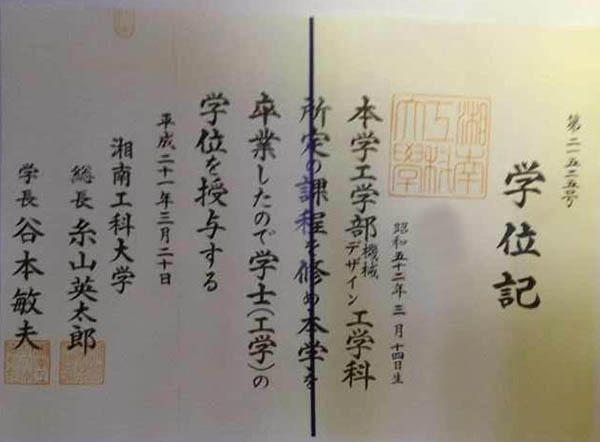 第二一五二五号
学位記
湘南工科大學
昭和五十二年三月十四日生
本学工学部機械デザイン工学科
所定の課程を修め本学を
卒業したので学士(工学)の
学位を授与する
平成二十一年三月二十日
湘南工科大学
総長 糸山英太郎
学長 谷本敏夫